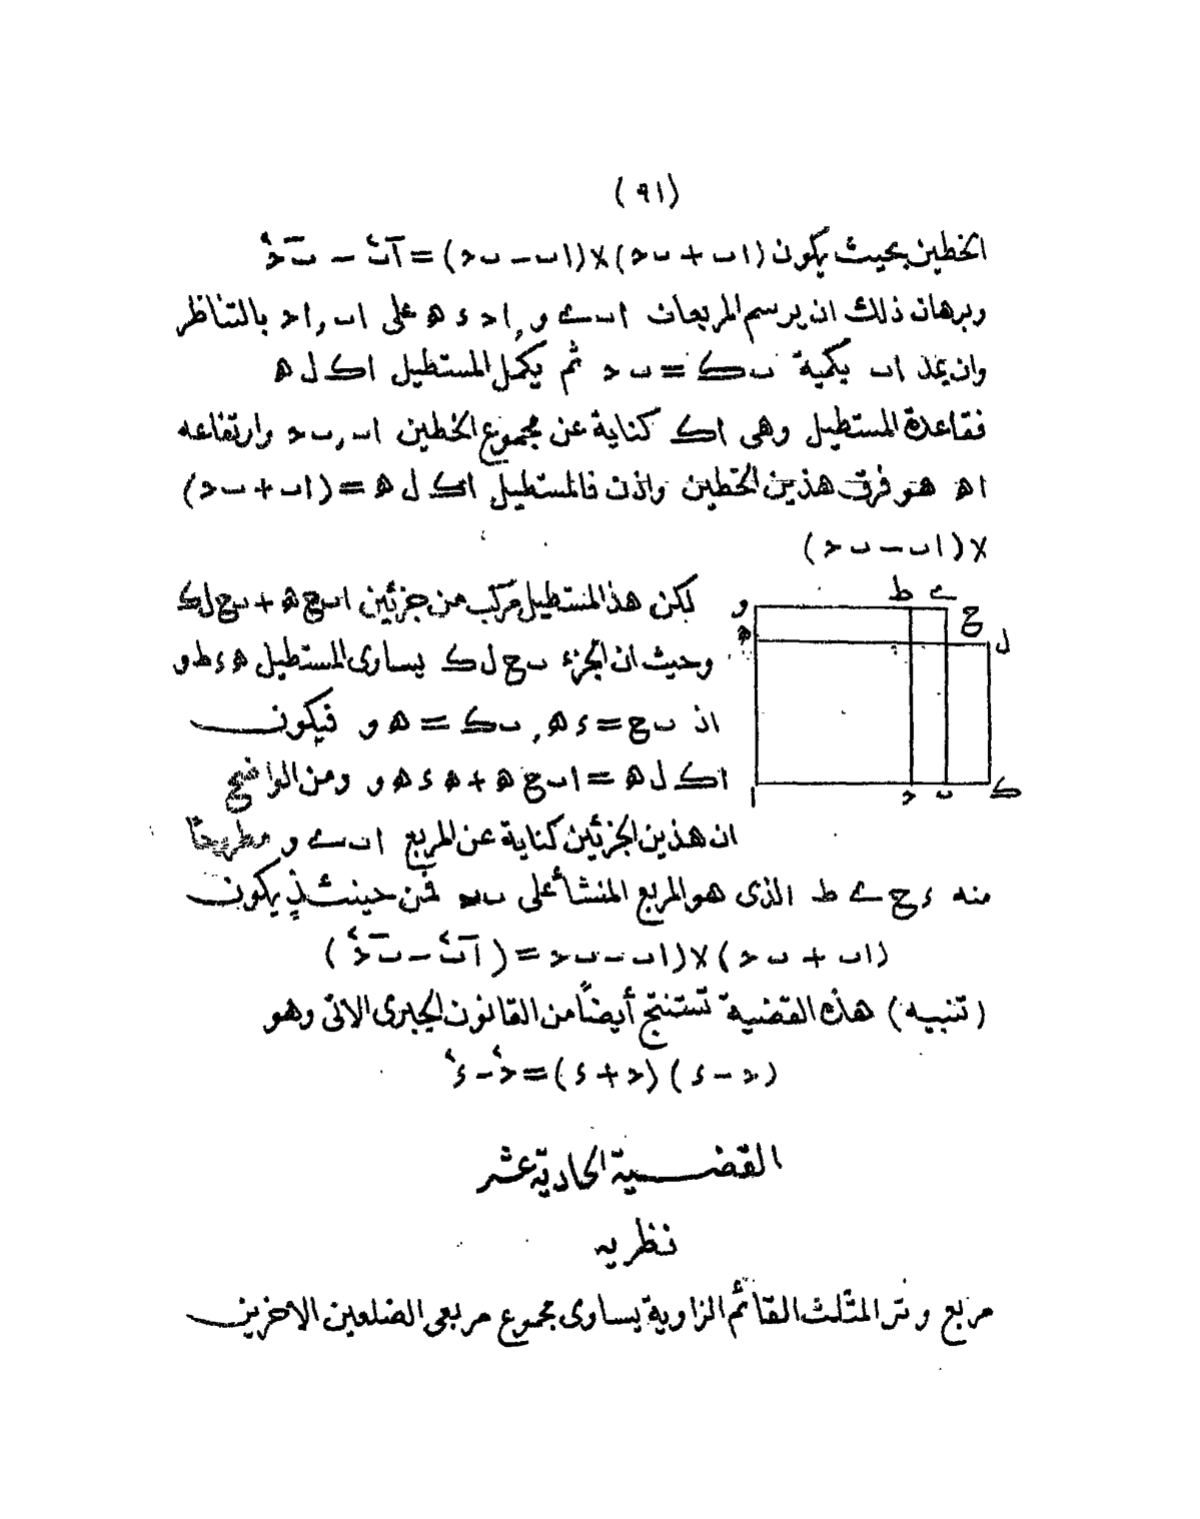 (٩١)
الخطين بحيث يكون (اب + بح) × (اب – بح) = اب٢ – بح٢
وبرهان ذلك ان يرسم المربعات اب ے و , اح ء ه على اب , اح بالتناظر
وان يمد اب بكمية ب ك = ب ح ثم يكمل المستطيل اك ل ه
فقاعدة المستطيل وهى اك كناية عن مجموع الخطين اب , بح وارتفاعه
اه هو فرق هذين الخطين واذن فالمستطيل اك ل ه = (اب + بح)
× (اب – بح)
لكن هذا المستطيل مركب من جزئين اب ج ه + ب ج ل ك
وحيث ان الجزء ب ج ل ك يساوى المستطيل ه ء ط و
اذ ب ج = ء ه , ب ك = ه و فيكون
اك ل ه = اب ج ه + ه ء ه و ومن الواضح
ان هذين الجزئين كناية عن المربع اب ے و مطروحا
منه ء ج ے ط الذى هو المربع المنشأ على بح فمن حينئذ يكون
(اب + بح) × (اب – بح = (اب٢ – بح٢)
(تنبيه) هذه القضية تستنتج أيضًا من القانون الجبرى الاتى وهو
(ح – ء) (ح + ء) = ح٢ – ء٢
و ط ے ج
ه ل
ا ح ب ك
القضية الحادية عشر
نظريه
مربع وتر المثلث القائم الزاوية يساوى مجموع مربعى الضلعين الاخرين